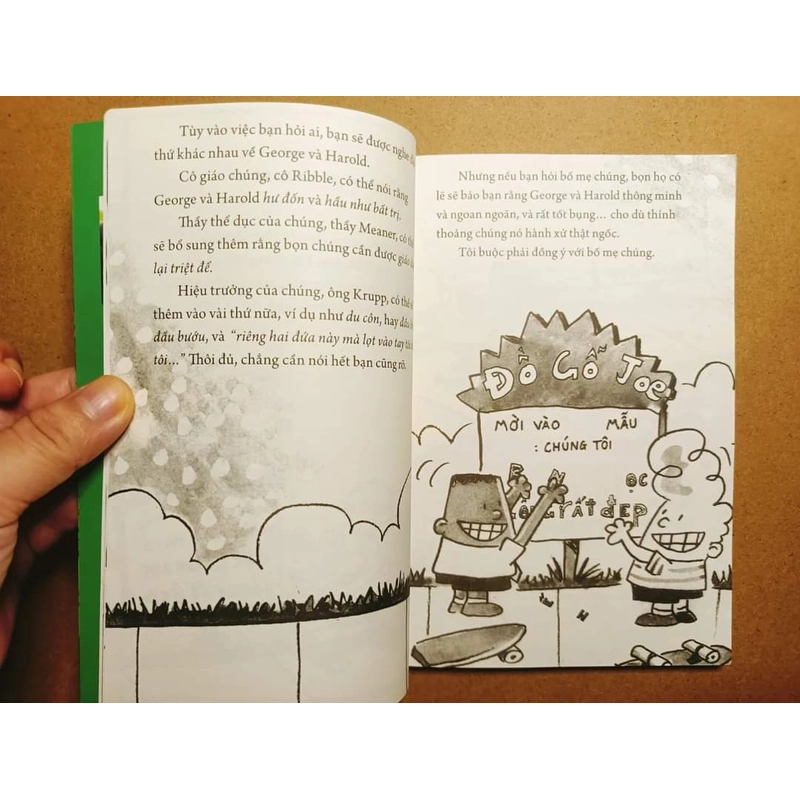 Tùy vào việc bạn hỏi ai, bạn sẽ được nghe
thứ khác nhau về George và Harold.
Cô giáo chúng, cô Ribble, có thể nói rằng
George và Harold hư đốn và hầu như bất trị.
Thầy thể dục của chúng, thầy Meaner, có
sẽ bổ sung thêm rằng bọn chúng cần được giáo
lại triệt để.
Hiệu trưởng của chúng, ông Krupp, có thể
thêm vào vài thứ nữa, ví dụ như du côn, hay
đầu bướu, và “riêng hai đứa này mà lọt vào tay
tôi...” Thôi đủ, chẳng cần nói hết bạn cũng rõ.
Nhưng nếu bạn hỏi bố mẹ chúng, bọn họ có
lẽ sẽ bảo bạn rằng George và Harold thông minh
và ngoan ngoãn, và rất tốt bụng... cho dù thỉnh
thoảng chúng nó hành xử thật ngốc.
Tôi buộc phải đồng ý với bố mẹ chúng.
Đồ Gỗ Joe
MỜI VÀO MẪU
: CHÚNG TÔI
ỌC
RẤT ĐẸP